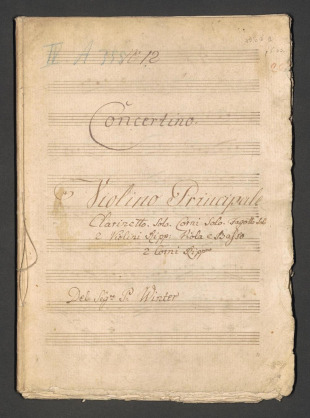 Concertino.
Violino Principale
Clarinetto. Solo. Corni Solo. Fagotto Solo
2 Violini Ripp: Viola e Basso
2 Corni Ripp:
Del Sigre P. Winter